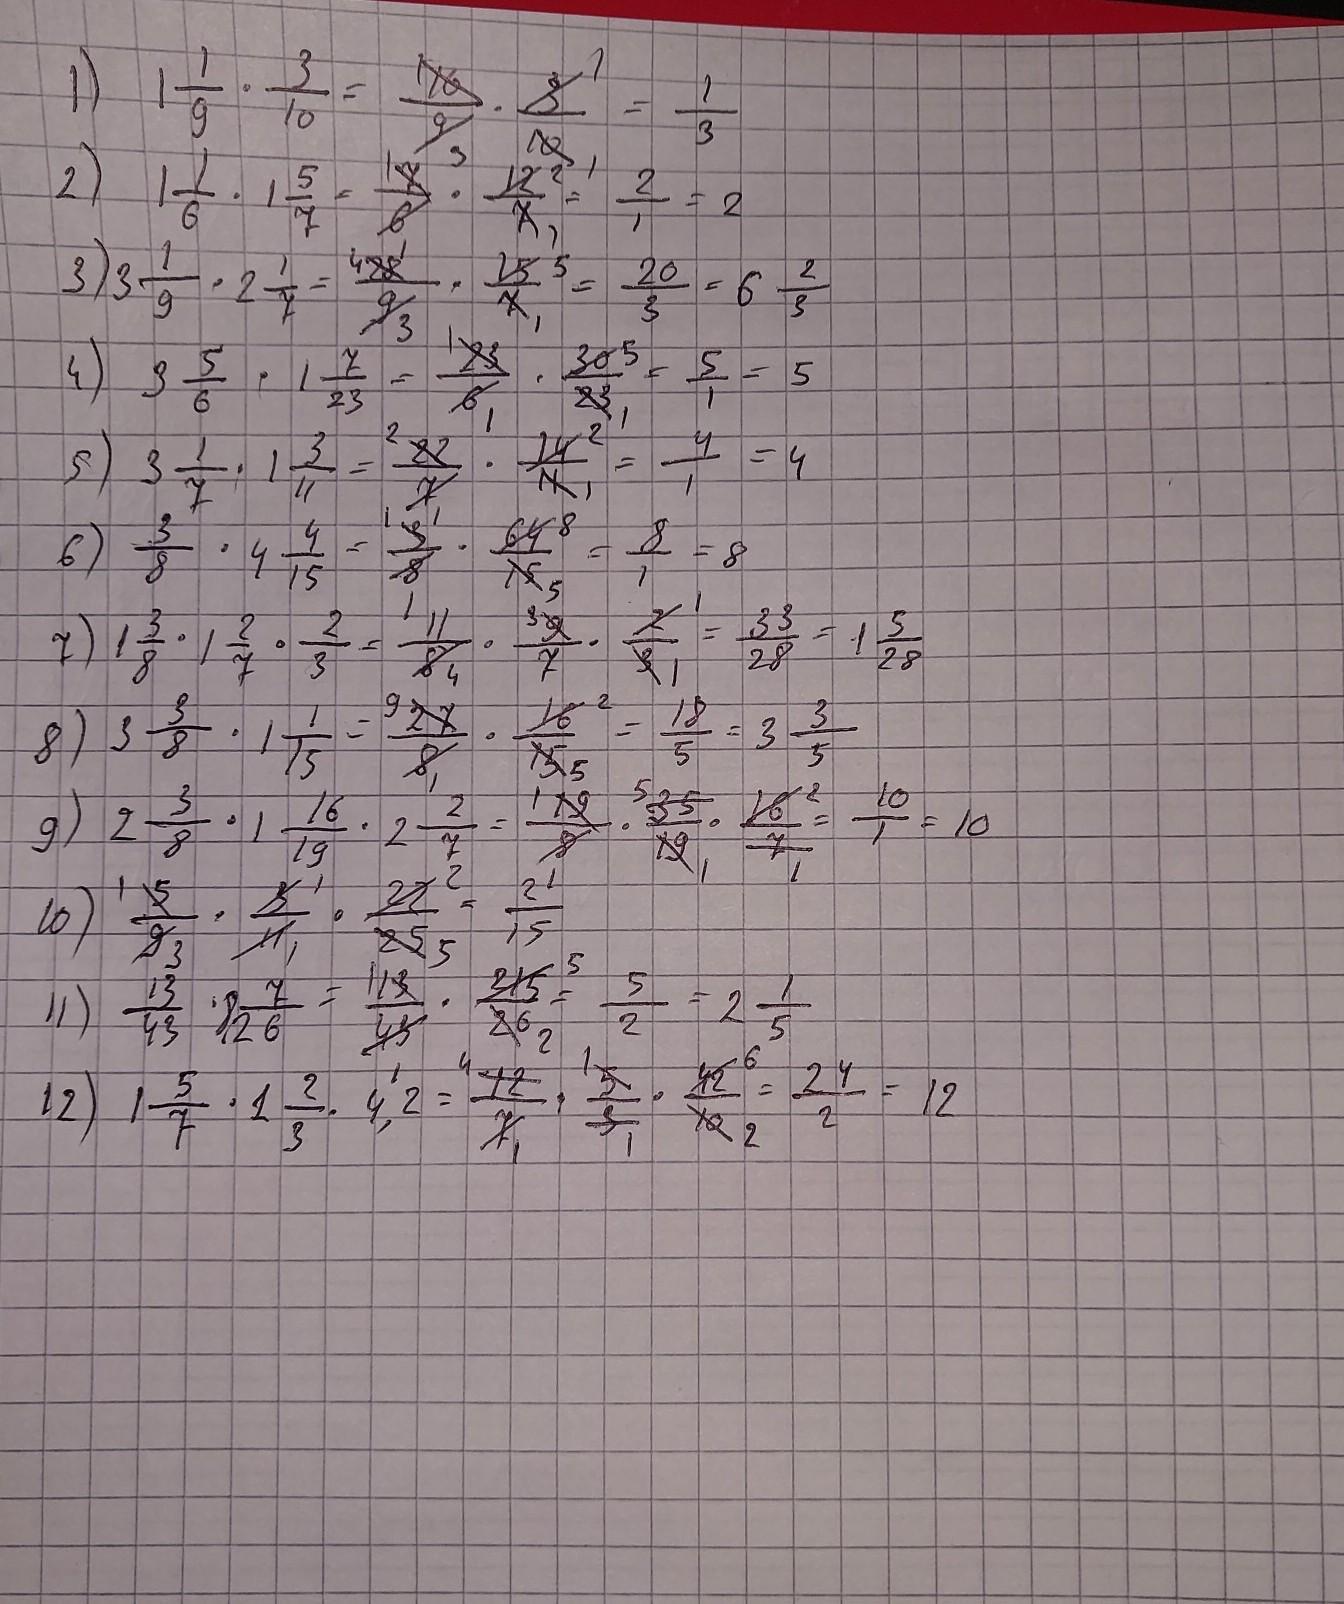 1) 1 1/9 · 3/10 = 10/9 · 3/10 = 1/3
2) 1 1/6 · 1 5/7 = 7/6 · 12/7 = 2/1 = 2
3) 3 1/9 · 2 1/7 = 28/9 · 15/7 = 20/3 = 6 2/3
4) 3 5/6 · 1 7/23 = 23/6 · 30/23 = 5/1 = 5
5) 3 1/7 · 1 3/11 = 22/7 · 14/11 = 4/1 = 4
6) 3/8 · 4 4/15 = 3/8 · 64/15 = 8/1 = 8
7) 1 3/8 · 1 2/7 · 2/3 = 11/8 · 9/7 · 2/3 = 33/28 = 1 5/28
8) 3 3/8 · 1 1/15 = 27/8 · 16/15 = 18/5 = 3 3/5
9) 2 3/8 · 1 16/19 · 2 2/7 = 19/8 · 35/19 · 16/7 = 10/1 = 10
10) 5/9 · 3/11 · 22/25 = 2/15
11) 13/43 · 8 7/26 = 13/43 · 215/26 = 5/2 = 2 1/5
12) 1 5/7 · 1 2/3 · 4,2 = 12/7 · 5/3 · 42/10 = 24/2 = 12